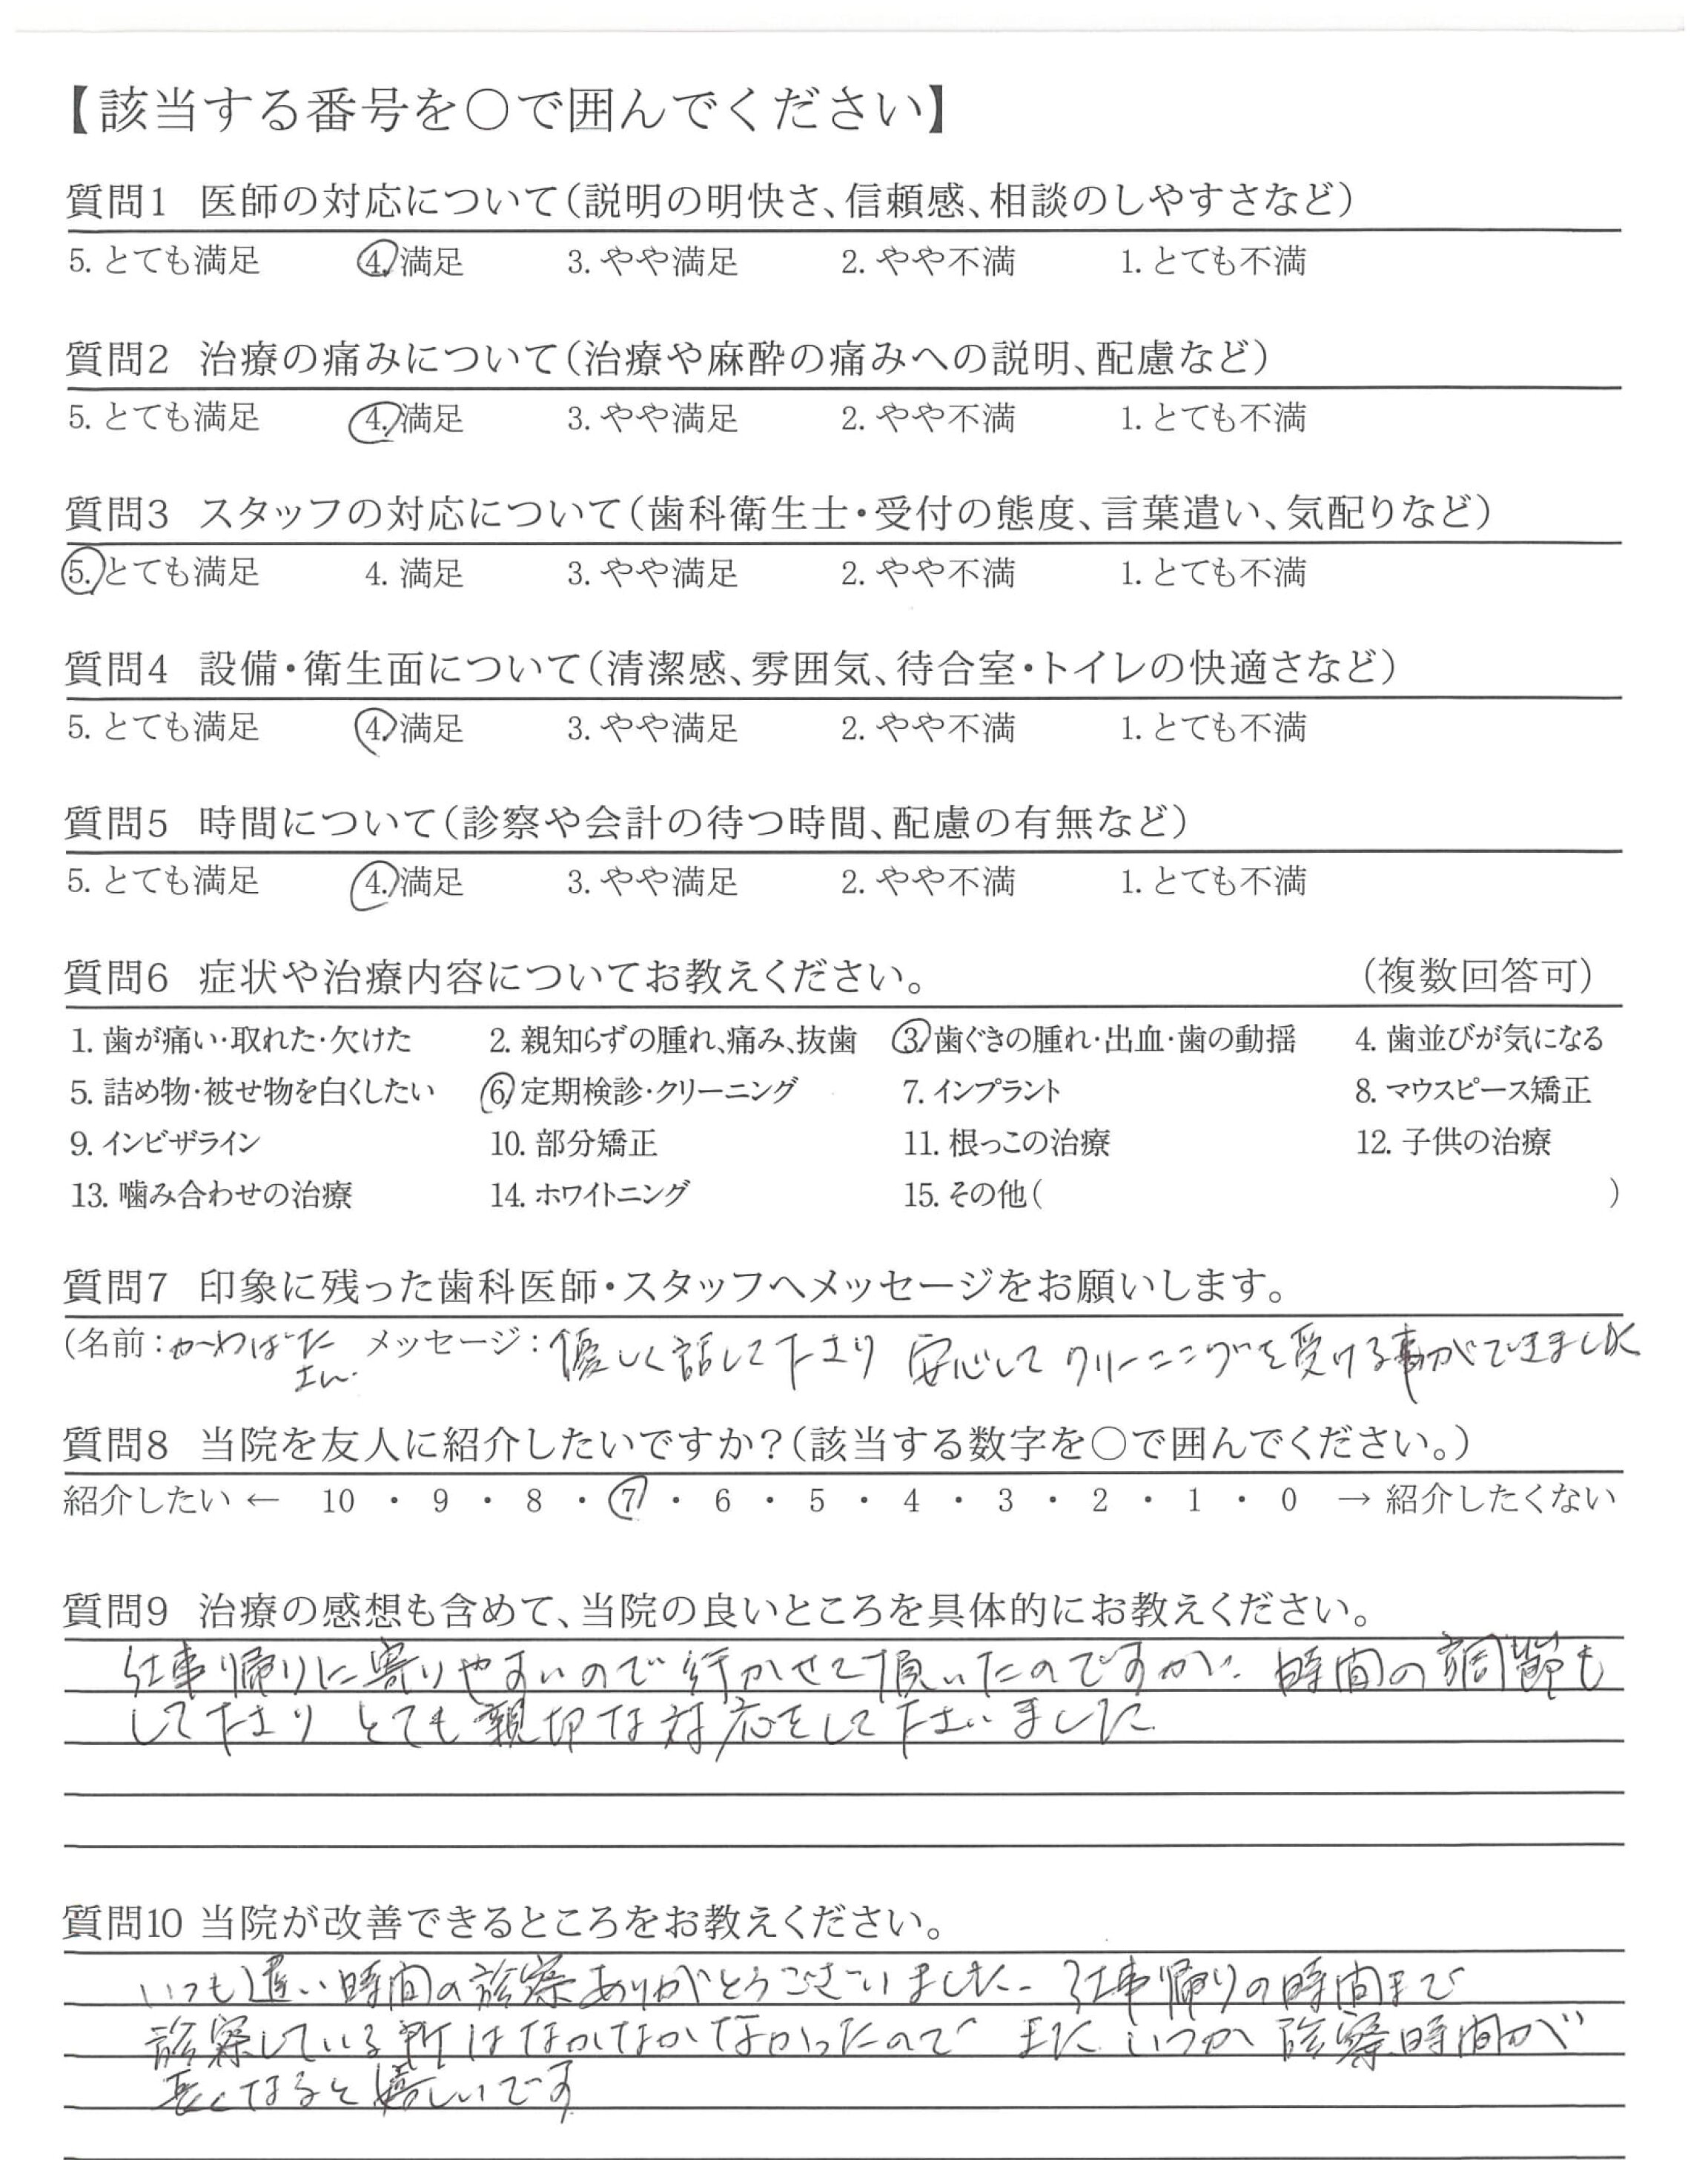 【該当する番号を○で囲んでください】
質問1 医師の対応について(説明の明快さ、信頼感、相談のしやすさなど)
5. とても満足 4. 満足 3. やや満足 2. やや不満 1. とても不満
質問2 治療の痛みについて(治療や麻酔の痛みへの説明、配慮など)
5. とても満足 4. 満足 3. やや満足 2. やや不満 1. とても不満
質問3 スタッフの対応について(歯科衛生士・受付の態度、言葉遣い、気配りなど)
5. とても満足 4. 満足 3. やや満足 2. やや不満 1. とても不満
質問4 設備・衛生面について(清潔感、雰囲気、待合室・トイレの快適さなど)
5. とても満足 4. 満足 3. やや満足 2. やや不満 1. とても不満
質問5 時間について(診察や会計の待つ時間、配慮の有無など)
5. とても満足 4. 満足 3. やや満足 2. やや不満 1. とても不満
質問6 症状や治療内容についてお教えください。 (複数回答可)
1. 歯が痛い・取れた・欠けた 2. 親知らずの腫れ、痛み、抜歯 3. 歯ぐきの腫れ・出血・歯の動揺 4. 歯並びが気になる
5. 詰め物・被せ物を白くしたい 6. 定期検診・クリーニング 7. インプラント 8. マウスピース矯正
9. インビザライン 10. 部分矯正 11. 根っこの治療 12. 子供の治療
13. 噛み合わせの治療 14. ホワイトニング 15. その他( )
質問7 印象に残った歯科医師・スタッフへメッセージをお願いします。
(名前: さん メッセージ: 優しく話して下さり 安心して クリーニングを受ける事ができました
質問8 当院を友人に紹介したいですか?(該当する数字を○で囲んでください。)
紹介したい ← 10 ・ 9 ・ 8 ・ 7 ・ 6 ・ 5 ・ 4 ・ 3 ・ 2 ・ 1 ・ 0 → 紹介したくない
質問9 治療の感想も含めて、当院の良いところを具体的にお教えください。
仕事帰りに寄りやすいので行かせて頂いたのですが、時間の調節も
して下さり とても親切な対応をして下さいました
質問10 当院が改善できるところをお教えください。
いつも遅い時間の診察ありがとうございました。仕事帰りの時間まで
診察している所はなかなかなかったので また いつか 診察時間が
長くなると嬉しいです